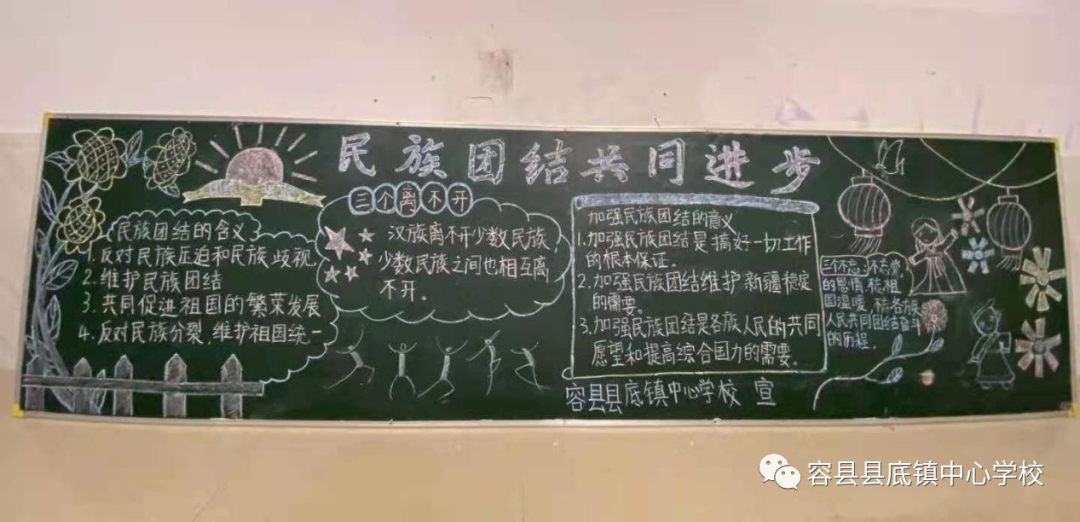 民族团结共同进步
民族团结的含义
1.反对民族压迫和民族歧视
2.维护民族团结
3.共同促进祖国的繁荣发展
4.反对民族分裂,维护祖国统一
三个离不开
汉族离不开少数民族,
少数民族之间也相互离
不开。
加强民族团结的意义
1.加强民族团结是搞好一切工作
的根本保证。
2.加强民族团结维护新疆稳定
的需要。
3.加强民族团结是各族人民的共同
愿望和提高综合国力的需要。
三个不忘:不忘党
的恩情
国温暖
人民共同团结奋斗
的历程。
容县县底镇中心学校 宣
容县县底镇中心学校